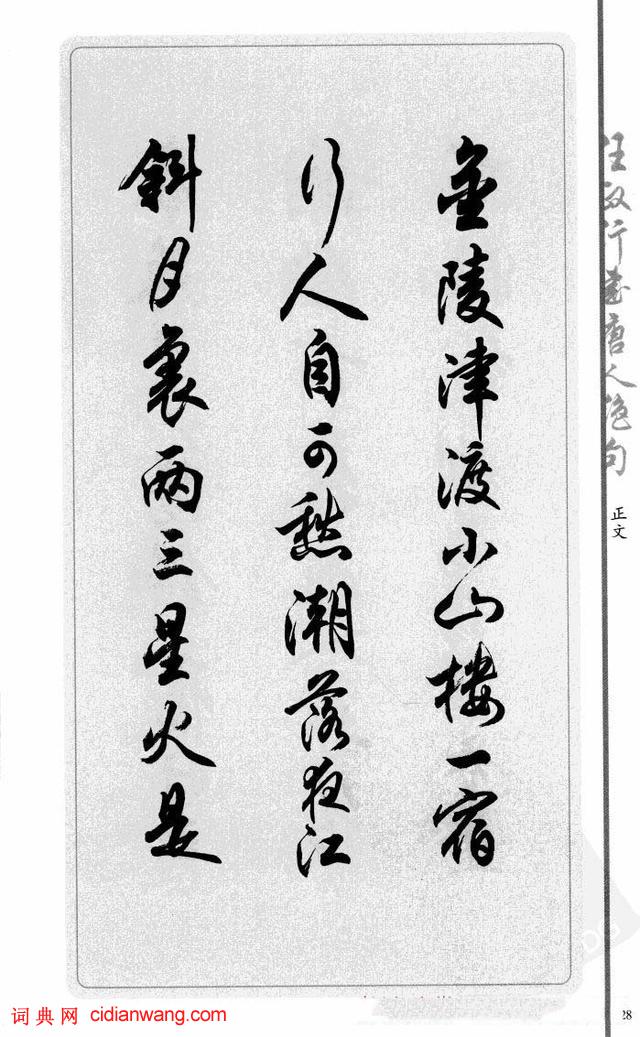 任政行書唐人絕句
正文
金陵津渡小山樓一宿
行人自可愁潮落夜江
斜月裏兩三星火是
词典网 cidianwang.com
28